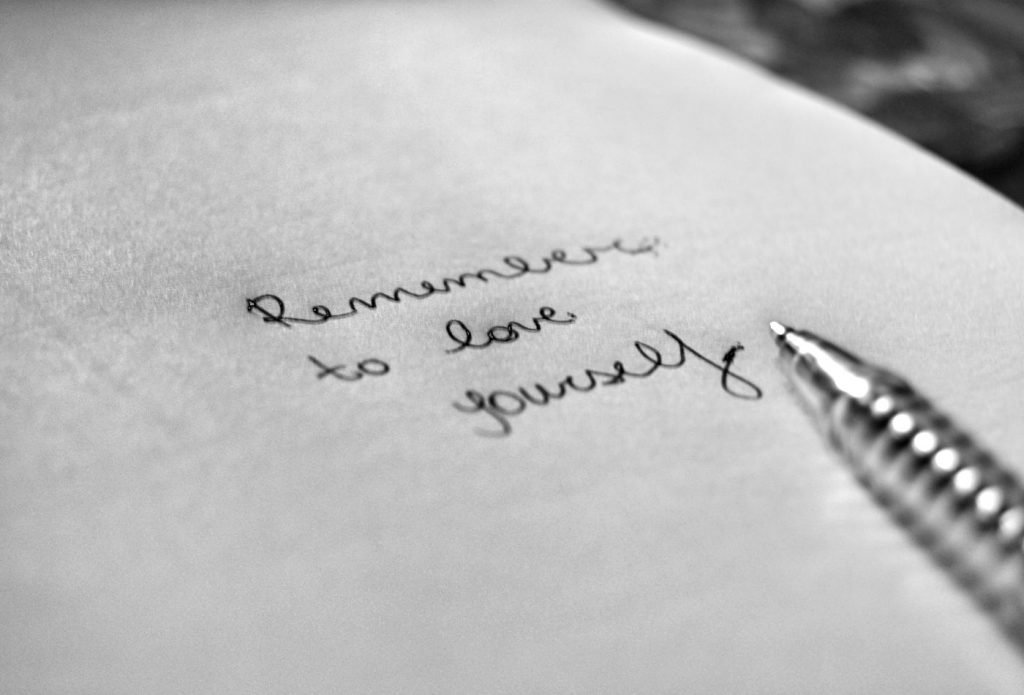 Remember
to love
yourself